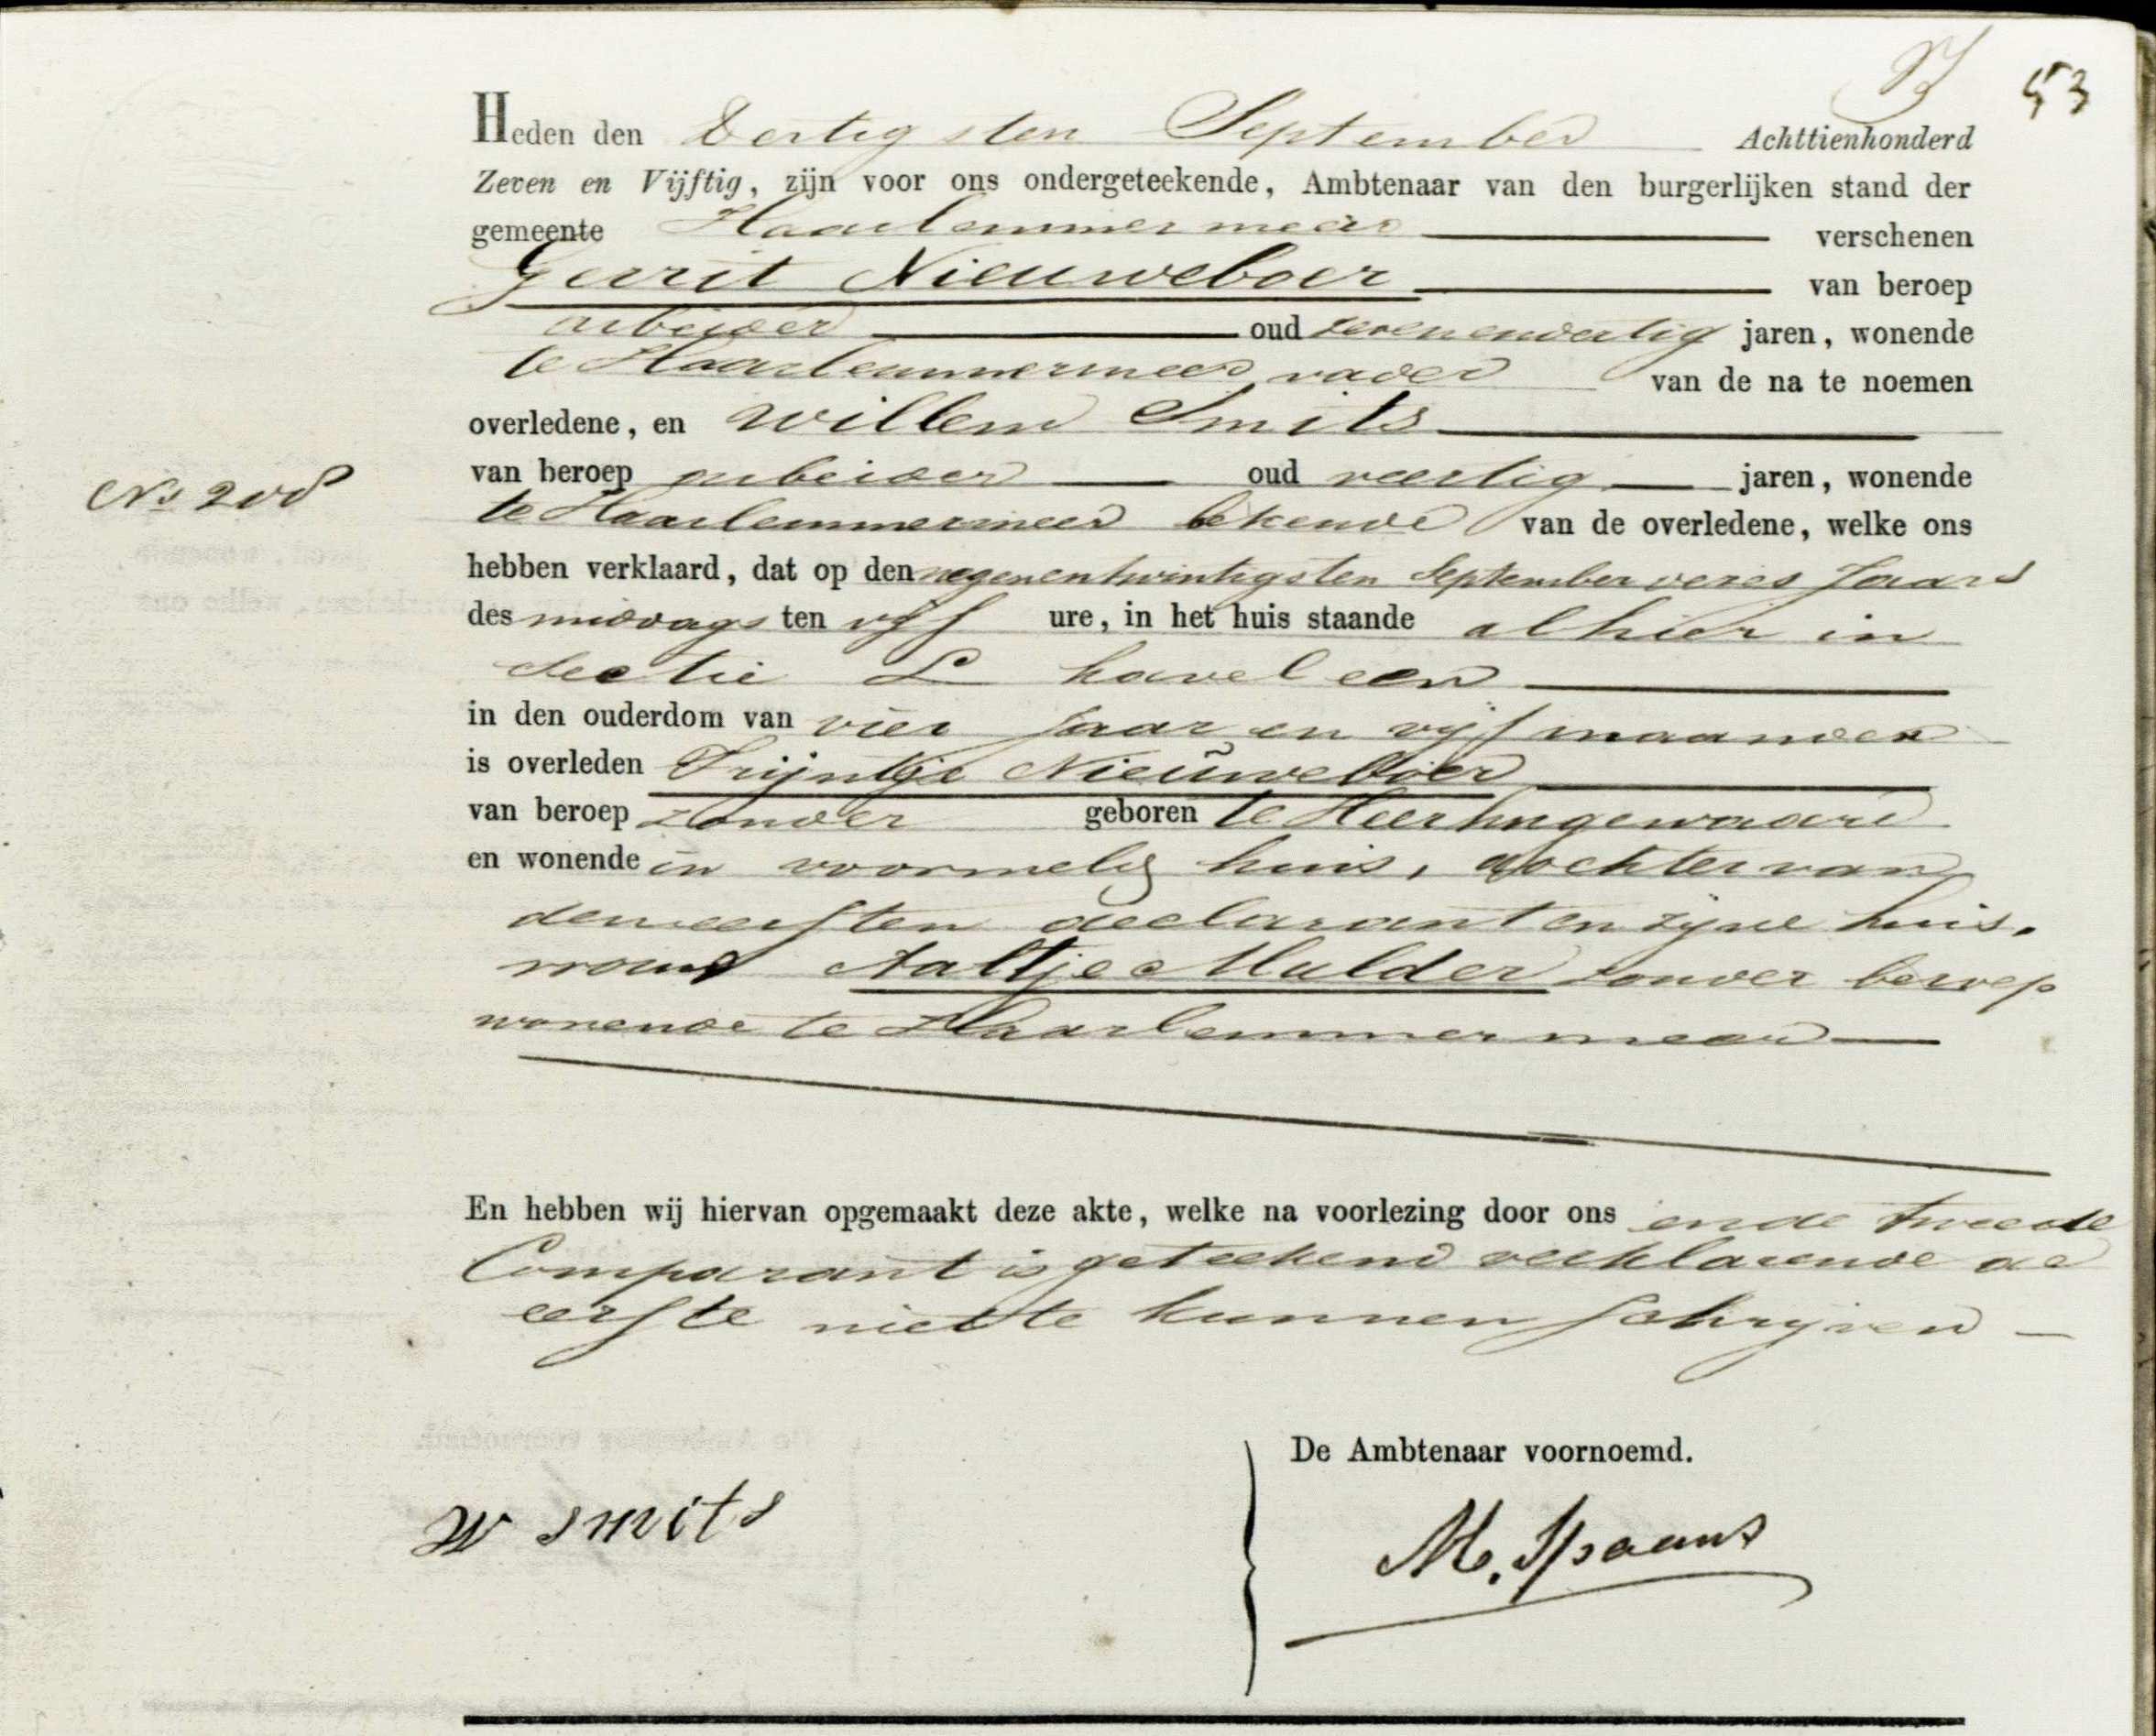 53
Heden den Dertigsten September Achttienhonderd
Zeven en Vijftig, zijn voor ons ondergeteekende, Ambtenaar van den burgerlijken stand der
gemeente Haarlemmermeer verschenen
Gerrit Nieuweboer van beroep
arbeider oud zevenendertig jaren, wonende
te Haarlemmermeer vader van de na te noemen
overledene, en Willem Smits
van beroep arbeider oud veertig jaren, wonende
No 208
te Haarlemmermeer bekende van de overledene, welke ons
hebben verklaard, dat op den negenentwintigsten September dezes Jaars
des middags ten vyf ure, in het huis staande alhier in
Sectie L kavel een
in den ouderdom van vier Jaar en vyf maanden
is overleden Trijntje Nieuweboer
van beroep zonder geboren te Heerhugowaard
en wonende in voormeld huis, dochter van
den eersten declarant en zyne huis.
vrouw Aaltje Mulder zonder beroep
wonende te Haarlemmermeer
En hebben wij hiervan opgemaakt deze akte, welke na voorlezing door ons en de tweede
Comparant is geteekend verklarende de
eerste niet te kunnen schryven
De Ambtenaar voornoemd.
W smits
M. Spaans